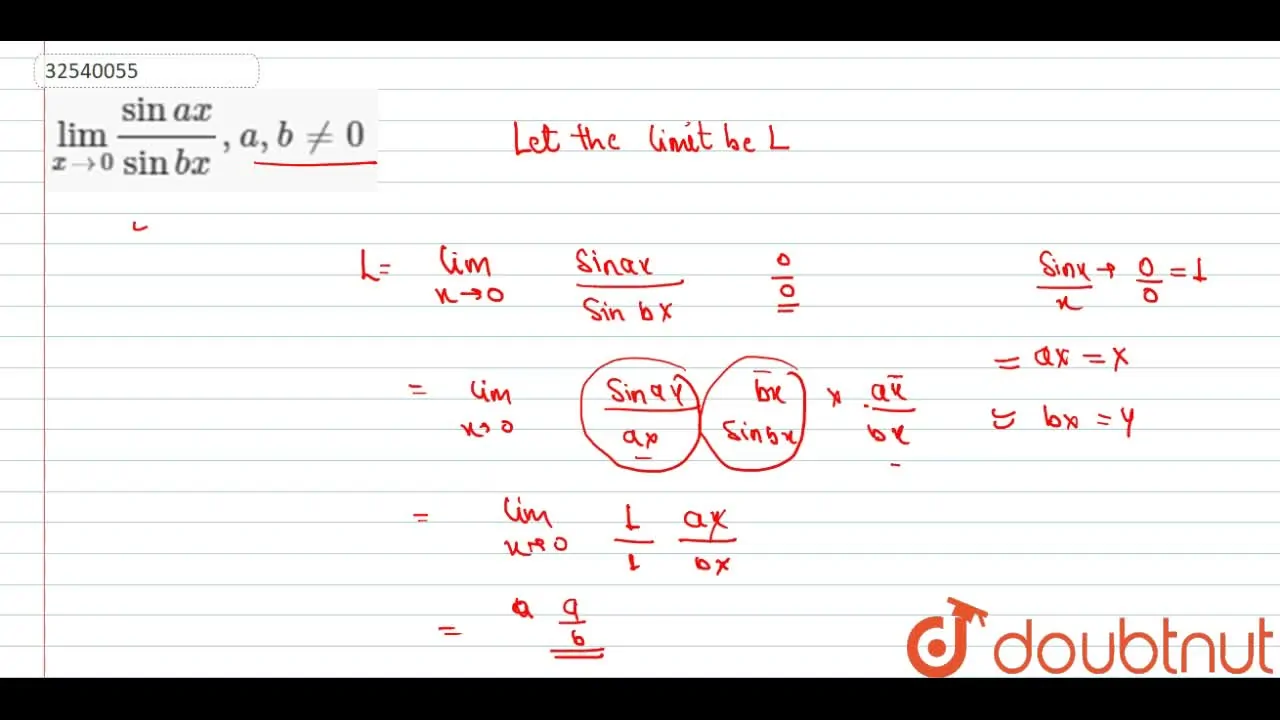 32540055
lim x→0 sin ax / sin bx , a, b ≠ 0
Let the limit be L
L= lim x→0 Sinax / Sin bx 0/0
Sinx / x → 0/0 = 1
= ax = x
= lim x→0 Sinax / ax bx / Sinbx × ax / bx
= bx = y
= lim x→0 1/1 ax/bx
= a a/b
doubtnut